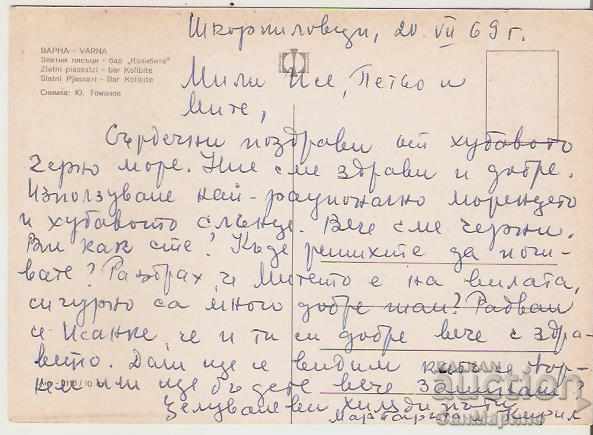 Шкорпиловци, 20 VII 69 г.
ВАРНА – VARNA
Златни пясъци - бар „Колибите"
Zlatni piassatzi - bar Kolibite
Slatni Pjassazi - Bar Kolibite
Снимка: Ю. Томанов
Мили Исе, Петьо и
Мите,
Сърдечни поздрави от хубавото
Черно море. Ние сме здрави и добре.
Използуваме най-рационално морещето
и хубавото слънце. Вече сме черни.
Вий как сте? Къде решихте да почи-
вате? Разбрах, че Митето е на вилата,
сигурно са много добре там? Радвам
се Исанке, че и ти си добре вече с здра-
вето. Дали ще се видим
или ще бъдете вече заминали?
Целуваме ви хиляди пъти
Маргарита и Кирил